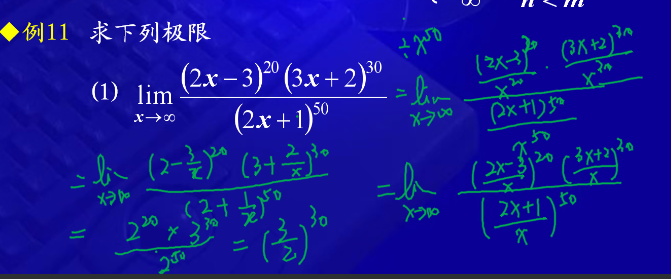 ∞ n < m
◆例11 求下列极限
(1) lim_{x→∞} \frac{(2x-3)^{20}(3x+2)^{30}}{(2x+1)^{50}}
÷x^{50}
= lim_{x→∞} \frac{\frac{(2x-3)^{20}}{x^{20}} · \frac{(3x+2)^{30}}{x^{30}}}{\frac{(2x+1)^{50}}{x^{50}}}
= lim_{x→∞} \frac{(\frac{2x-3}{x})^{20} (\frac{3x+2}{x})^{30}}{(\frac{2x+1}{x})^{50}}
= lim_{x→∞} \frac{(2-\frac{3}{x})^{20} (3+\frac{2}{x})^{30}}{(2+\frac{1}{x})^{50}}
= \frac{2^{20} × 3^{30}}{2^{50}} = (\frac{3}{2})^{30}